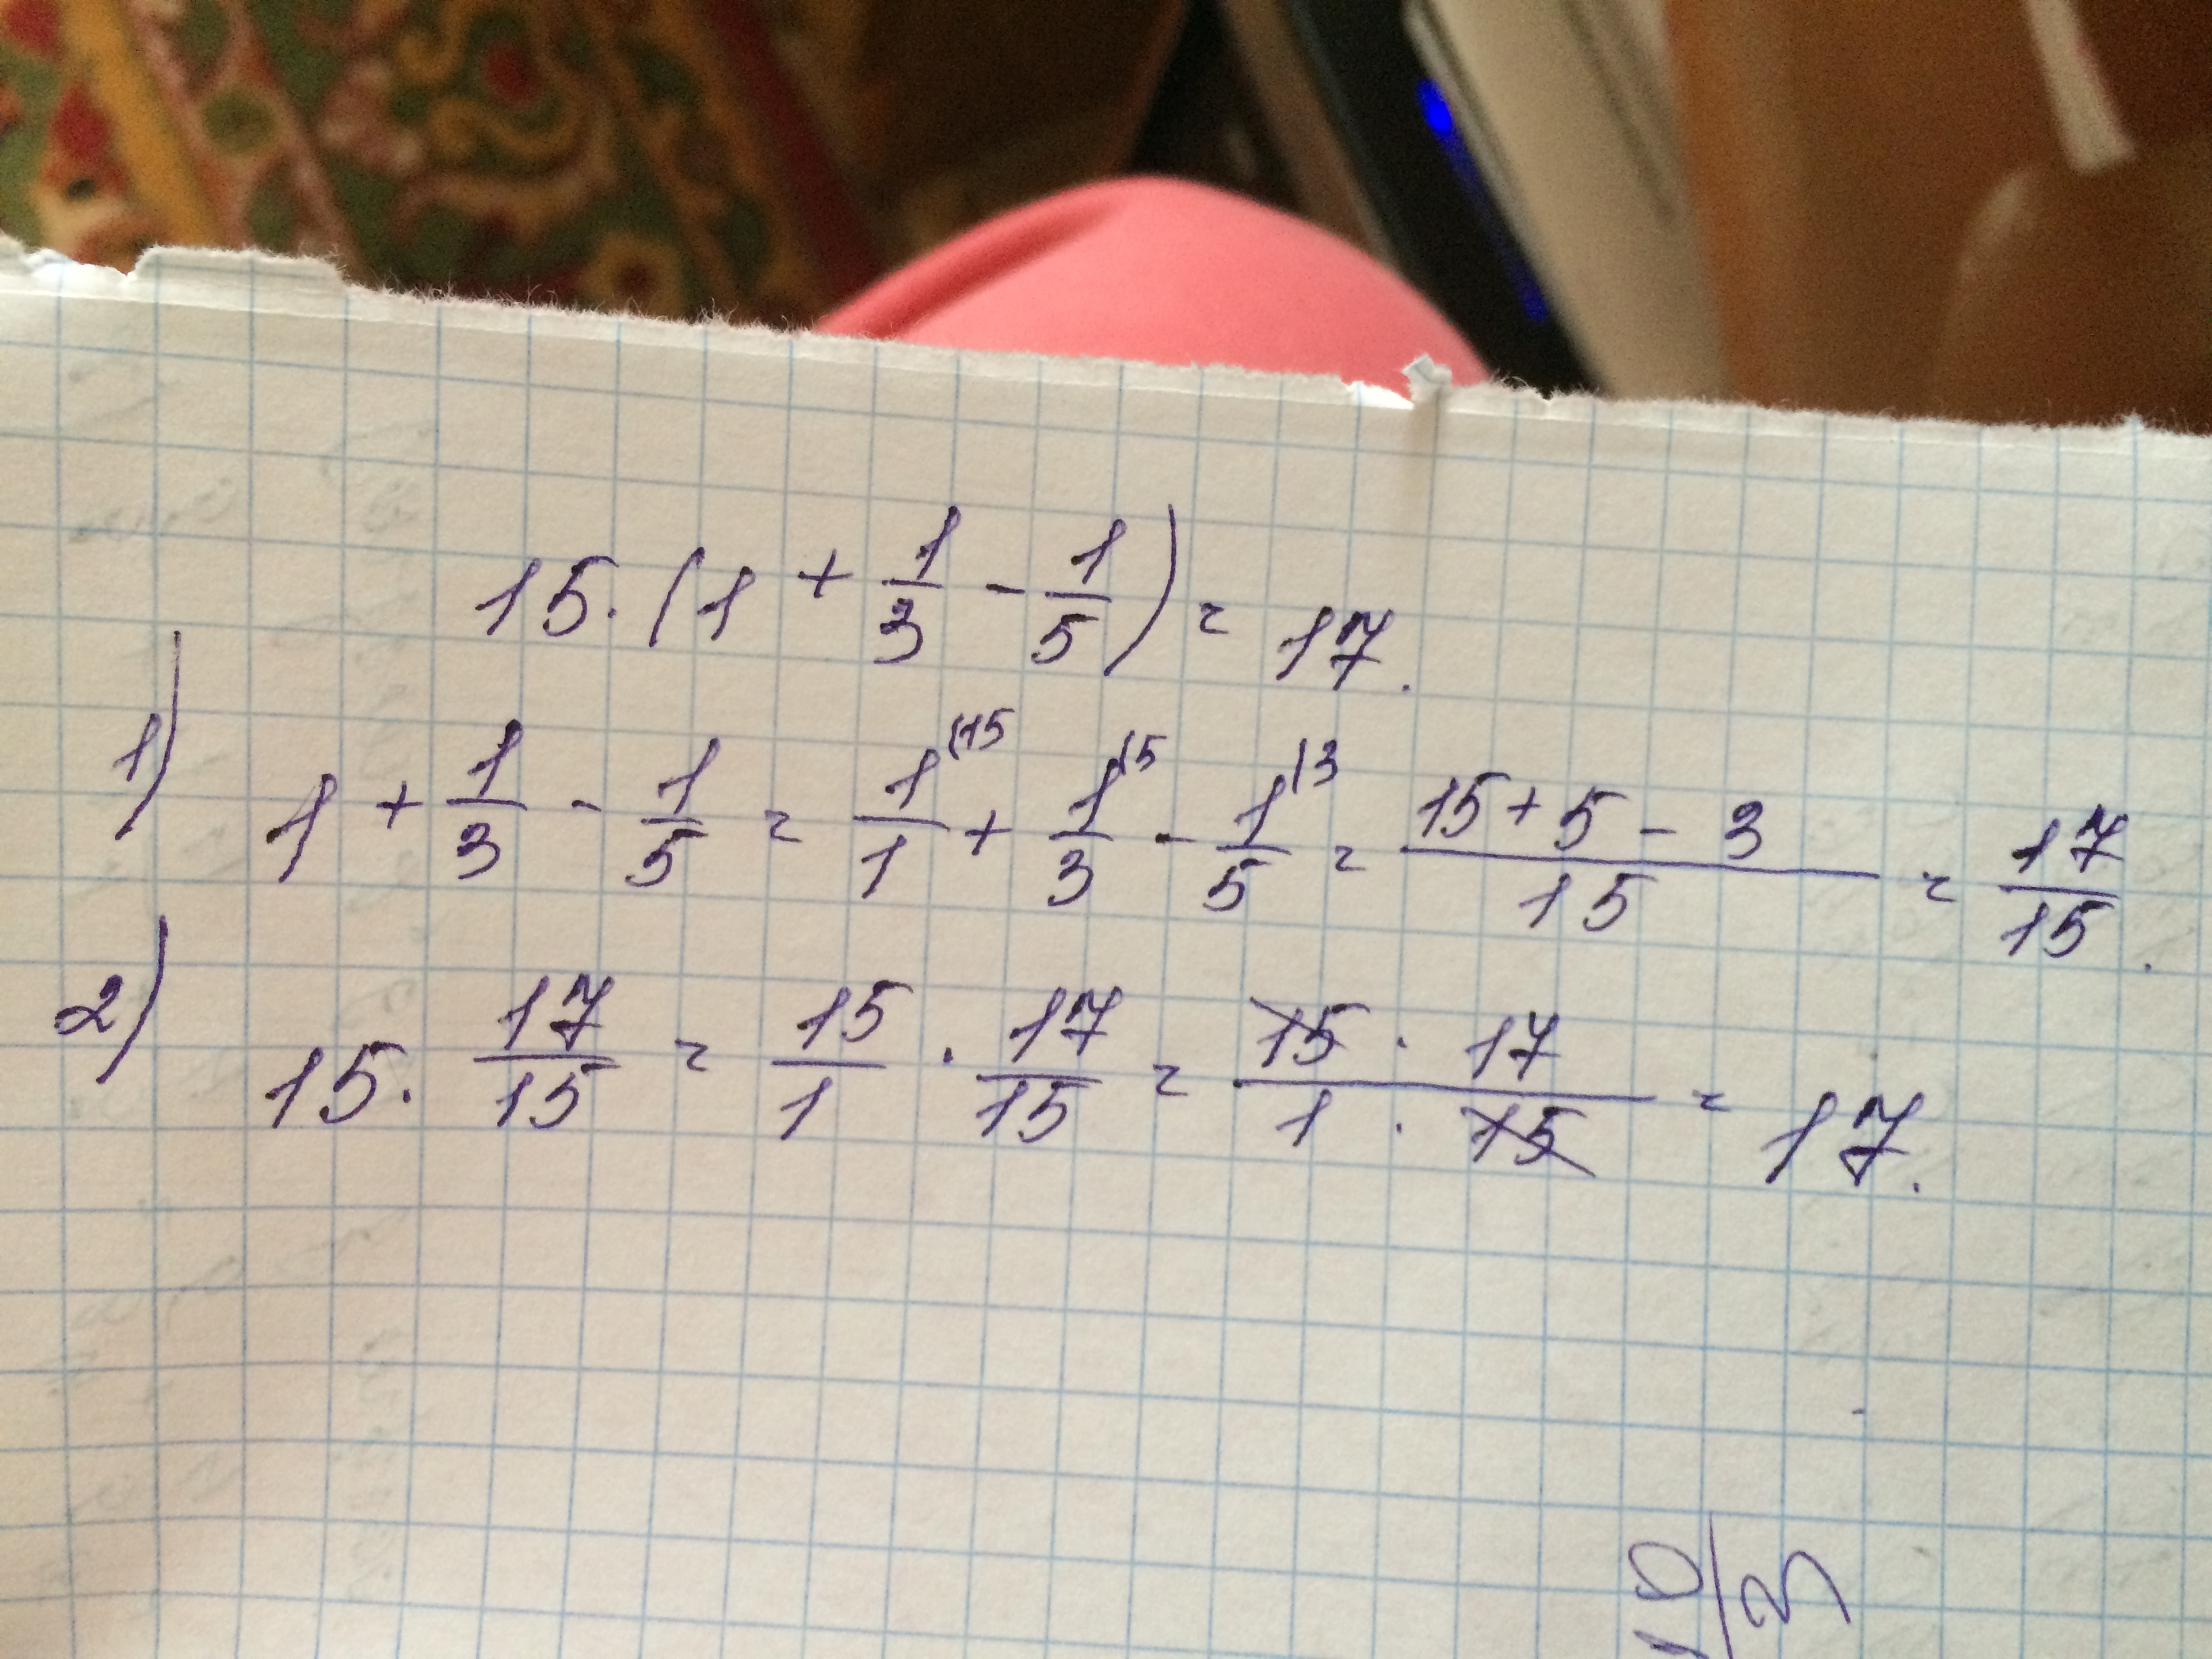 15 · (1 + 1/3 - 1/5) = 17.
1) 1 + 1/3 - 1/5 = 1/1 (15 + 1/3 (5 - 1/5 (3 = 15 + 5 - 3 / 15 = 17/15.
2) 15 · 17/15 = 15/1 · 17/15 = 15 · 17 / 1 · 15 = 17.